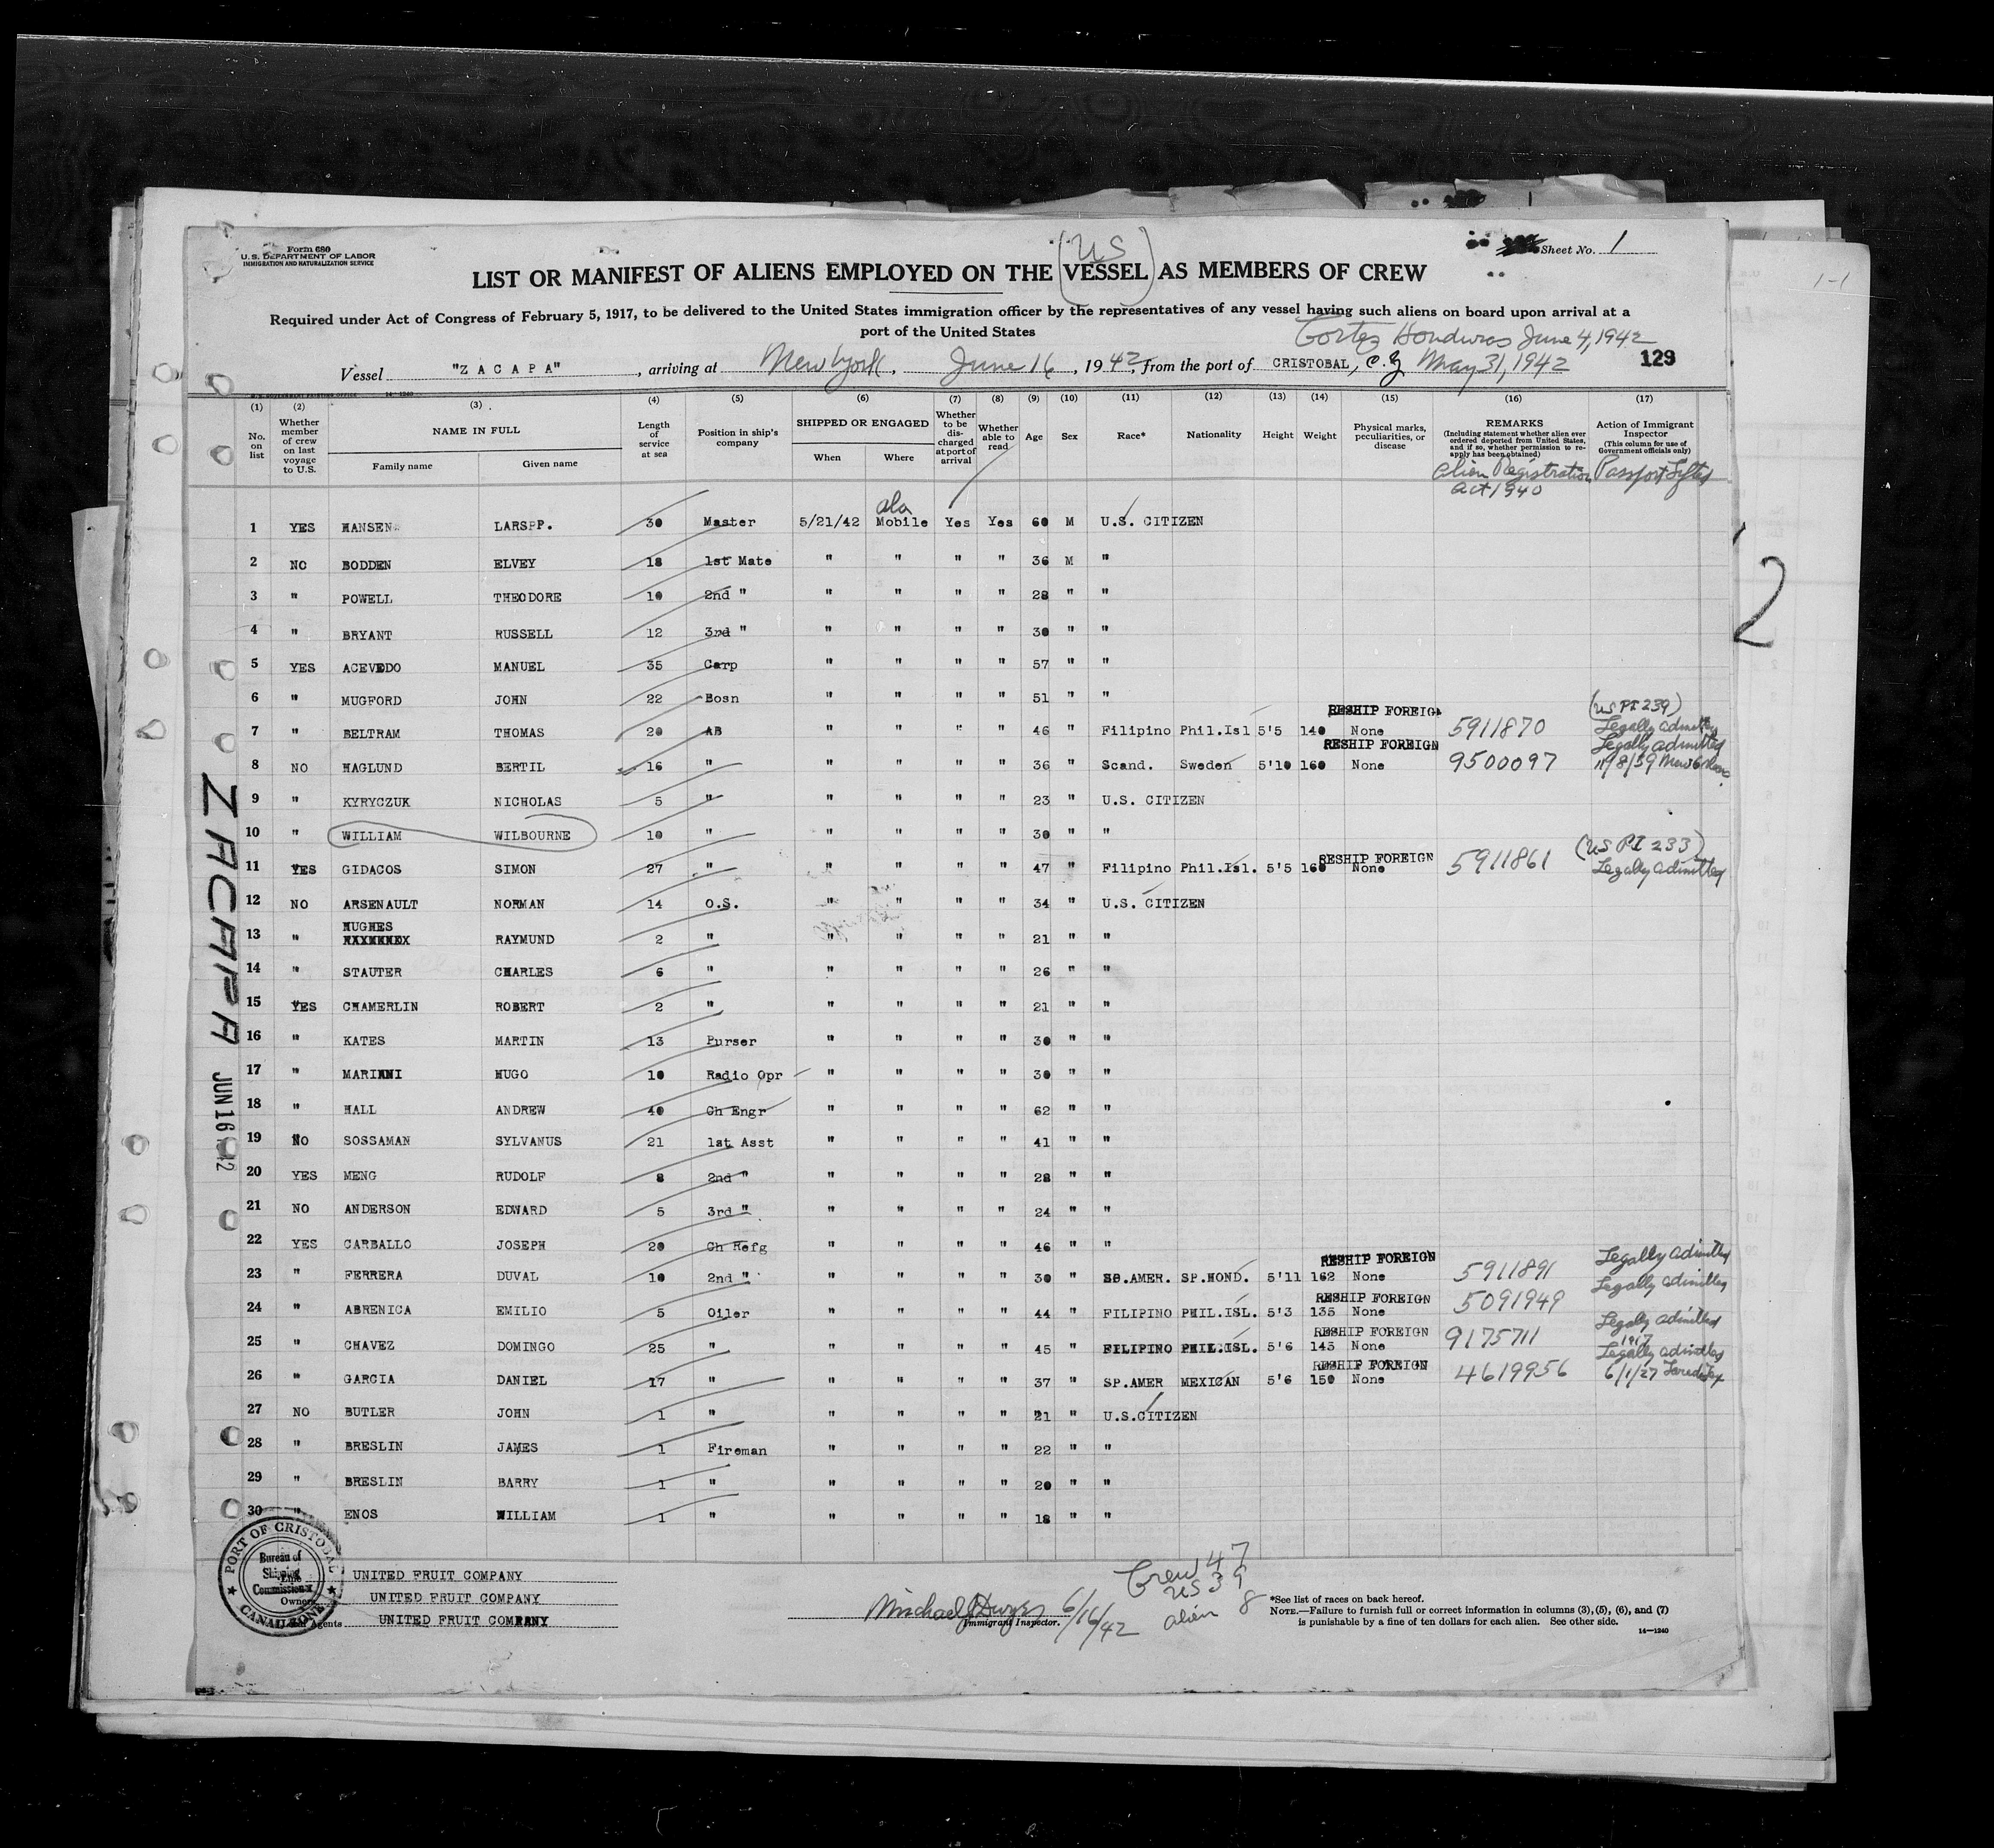 Form 680
U.S. DEPARTMENT OF LABOR
IMMIGRATION AND NATURALIZATION SERVICE
(US)
Sheet No. 1
1-1
LIST OR MANIFEST OF ALIENS EMPLOYED ON THE VESSEL AS MEMBERS OF CREW
Required under Act of Congress of February 5, 1917, to be delivered to the United States immigration officer by the representatives of any vessel having such aliens on board upon arrival at a
port of the United States
Cortez Honduras June 4, 1942
Vessel "ZACAPA", arriving at New York, June 16, 1942, from the port of CRISTOBAL, C.Z. May 31, 1942 129
14-1240
(1) (2) (3) (4) (5) (6) (7) (8) (9) (10) (11) (12) (13) (14) (15) (16) (17)
No. on list Whether member of crew on last voyage to U.S. NAME IN FULL Family name Given name Length of service at sea Position in ship's company SHIPPED OR ENGAGED When Where Whether to be discharged at port of arrival Whether able to read Age Sex Race* Nationality Height Weight Physical marks, peculiarities, or disease REMARKS (Including statement whether alien ever ordered deported from United States, and if so, whether permission to reapply has been obtained) Action of Immigrant Inspector (This column for use of Government officials only)
Alien Registration Act 1940 Passport Lifted
Ala
1 YES HANSEN LARSPP. 30 Master 5/21/42 Mobile Yes Yes 60 M U.S. CITIZEN
2 NO BODDEN ELVEY 18 1st Mate " " " " 36 M "
3 " POWELL THEODORE 10 2nd " " " " " 28 " "
4 " BRYANT RUSSELL 12 3rd " " " " " 30 " "
5 YES ACEVEDO MANUEL 35 Carp " " " " 57 " "
6 " MUGFORD JOHN 22 Bosn " " " " 51 " "
RESHIP FOREIGN (US PI 239)
7 " BELTRAM THOMAS 20 AB " " " " 46 " Filipino Phil.Isl 5'5 140 None 5911870 Legally admitted
RESHIP FOREIGN Legally admitted
8 NO HAGLUND BERTIL 16 " " " " " 36 " Scand. Sweden 5'10 160 None 9500097 11/8/39 New Orleans
9 " KYRYCZUK NICHOLAS 5 " " " " " 23 " U.S. CITIZEN
10 " WILLIAM WILBOURNE 10 " " " " " 30 " "
RESHIP FOREIGN (US PI 233)
11 YES GIDACOS SIMON 27 " " " " " 47 " Filipino Phil.Isl. 5'5 160 None 5911861 Legally admitted
12 NO ARSENAULT NORMAN 14 O.S. " " " " 34 " U.S. CITIZEN
13 " HUGHES RAYMUND 2 " " " " " 21 " "
14 " STAUTER CHARLES 6 " " " " " 26 " "
15 YES CHAMERLIN ROBERT 2 " " " " " 21 " "
16 " KATES MARTIN 13 Purser " " " " 30 " "
17 " MARIANI HUGO 10 Radio Opr " " " " 30 " "
18 " HALL ANDREW 40 Ch Engr " " " " 62 " "
19 NO SOSSAMAN SYLVANUS 21 1st Asst " " " " 41 " "
20 YES MENG RUDOLF 8 2nd " " " " " 28 " "
21 NO ANDERSON EDWARD 5 3rd " " " " " 24 " "
22 YES CARBALLO JOSEPH 20 Ch Refg " " " " 46 " "
RESHIP FOREIGN Legally admitted
23 " FERRERA DUVAL 10 2nd " " " " " 30 " SP.AMER. SP.HOND. 5'11 162 None 5911891
RESHIP FOREIGN Legally admitted
24 " ABRENICA EMILIO 5 Oiler " " " " 44 " FILIPINO PHIL.ISL. 5'3 135 None 5091949
RESHIP FOREIGN Legally admitted 1917
25 " CHAVEZ DOMINGO 25 " " " " " 45 " FILIPINO PHIL.ISL. 5'6 143 None 9175711
RESHIP FOREIGN Legally admitted
26 " GARCIA DANIEL 17 " " " " " 37 " SP.AMER MEXICAN 5'6 150 None 4619956 6/1/27 Laredo Tex
27 NO BUTLER JOHN 1 " " " " " 21 " U.S.CITIZEN
28 " BRESLIN JAMES 1 Fireman " " " " 22 " "
29 " BRESLIN BARRY 1 " " " " " 20 " "
30 " ENOS WILLIAM 1 " " " " " 18 " "
ZACAPA JUN 16 1942
2
PORT OF CRISTOBAL
Bureau of
Shipping
Commissioner
CANAL ZONE
Line UNITED FRUIT COMPANY
Owners UNITED FRUIT COMPANY
Agents UNITED FRUIT COMPANY
Michael J Dwyer 6/16/42
Immigrant Inspector.
Crew 47
US 39
alien 8
*See list of races on back hereof.
NOTE.—Failure to furnish full or correct information in columns (3), (5), (6), and (7)
is punishable by a fine of ten dollars for each alien. See other side.
14—1240